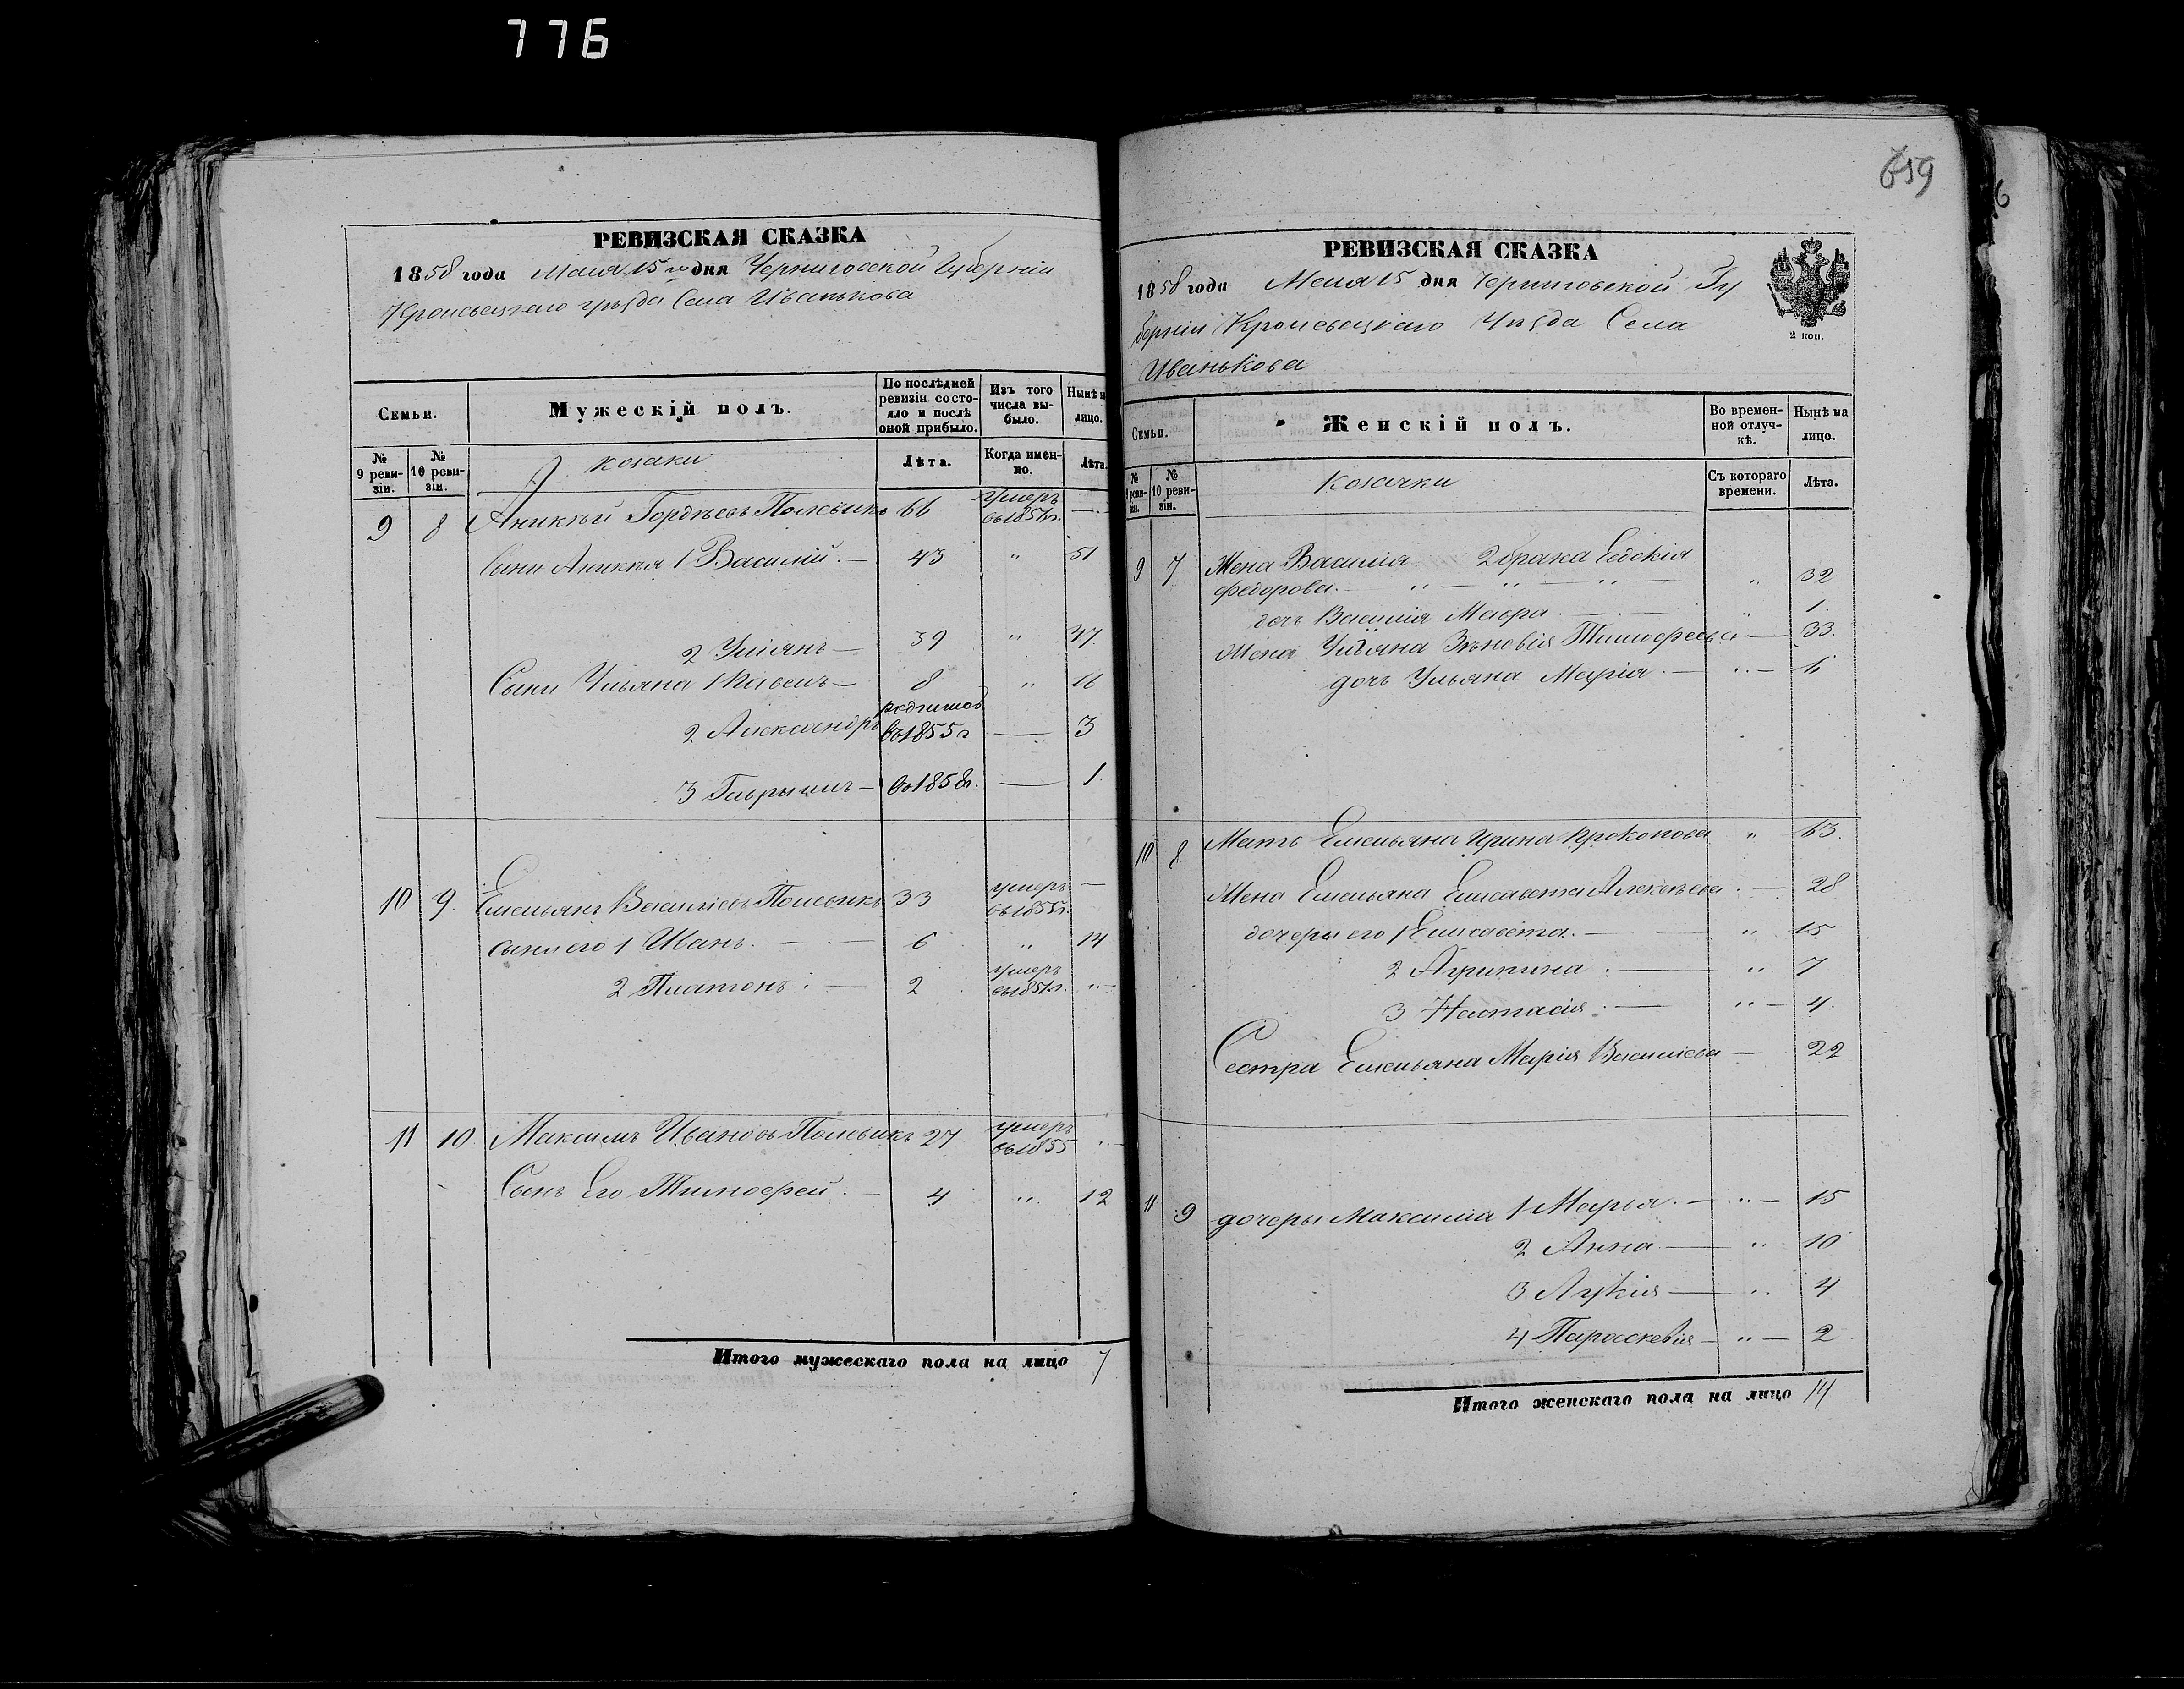 776
659
РЕВИЗСКАЯ СКАЗКА
1858 года Мая 15 го дня Черниговской Губерніи
Кролевецкаго уѣзда Села Иванькова
Семьи.
Мужескій полъ.
По послѣдней ревизіи состояло и послѣ оной прибыло.
Изъ того числа выбыло.
Нынѣ на лицо.
№ 9 ревизіи.
№ 10 ревизіи.
козаки
Лѣта.
Когда именно.
Лѣта.
9 8 Аникѣй Гордѣевъ Полевикъ 66 Умеръ въ 185 г. —
Сыни Аникѣя 1 Василій. — 43 " 51
2 Уліянъ — 39 " 47
Сыни Ульяна 1 — 8 " 16
2 Александръ родился въ 1855 г — 3
3 — въ 1858 г. — 1.
10 9. Емельянъ Василіевъ Полевикъ 33 умеръ въ 1855 г. —
сыни его 1 Иванъ. — 6 " 14
2 Платонъ. — 2 умеръ въ 185 г. "
11 10 Максимъ Ивановъ Полевикъ 27 умеръ въ 1855 "
Сынъ Его Тимофей. — 4 " 12
Итого мужескаго пола на лицо 7
РЕВИЗСКАЯ СКАЗКА
1858 года Мая 15 дня Черниговской Гу
берніи Кролевецкаго Уѣзда Села
Иванькова
2 коп.
Семьи.
Женскій полъ.
Во временной отлучкѣ.
Нынѣ на лицо.
№ 9 ревизіи.
№ 10 ревизіи.
Козачки
Съ котораго времени.
Лѣта.
9 7 Жена Василія 2 брака Евдокія
Федорова. — " — " — " — " 32
дочъ Василія Мавра. — " 1.
Жена Ульяна Зѣновія Тимофеева — 33.
дочъ Ульяна Марія. — " — 6
10 8 Мать Емельяна Ирина Прокопова " 63.
Жена Емельяна Елисавета Алексѣева. — 28
дочеры его 1 Елисавета. — " 15
2 Агрипина. — " 7
3 Настасія. — " — 4.
Сестра Емельяна Марія Василіева — 22
11 9 дочеры Максима 1 Марья. — " — 15
2 Анна. — " 10
3 Лукія — " 4
4 Параскевія — " — 2
Итого женскаго пола на лицо 14